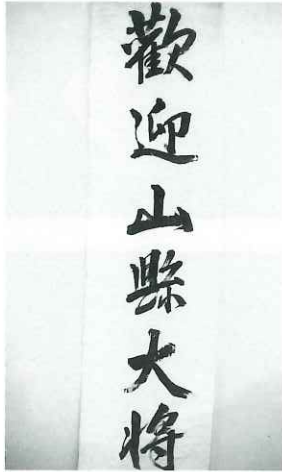 歡迎山縣大将